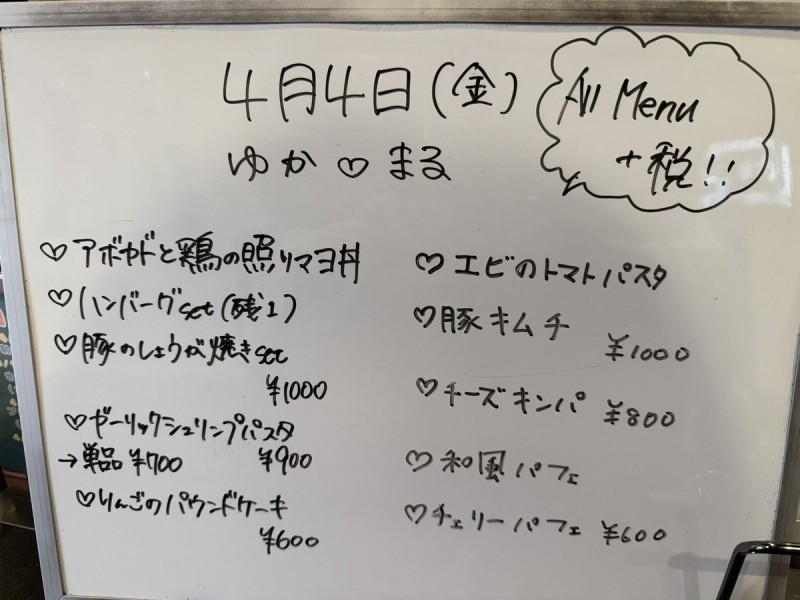 4月4日(金)
ゆか♡まる
All Menu
+税!!
♡アボカドと鶏の照りマヨ丼
♡ハンバーグset(残1)
♡豚のしょうが焼きset
¥1000
♡ガーリックシュリンプパスタ
→単品¥700 ¥900
♡りんごのパウンドケーキ
¥600
♡エビのトマトパスタ
♡豚キムチ
¥1000
♡チーズキンパ ¥800
♡和風パフェ
♡チェリーパフェ ¥600